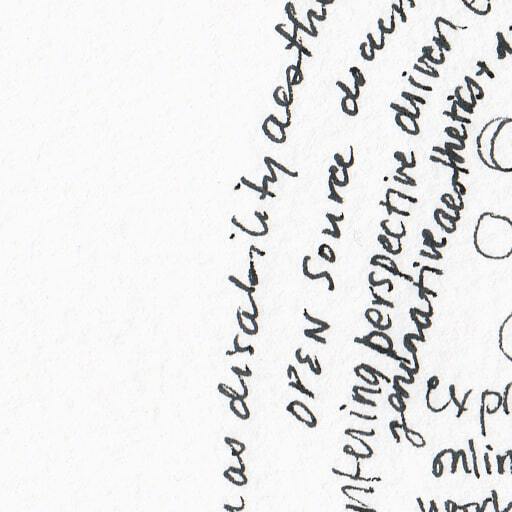 as disability aesthe
OPEN Source
ntering perspective driven
generative aesthetics +
expl
onlin
work